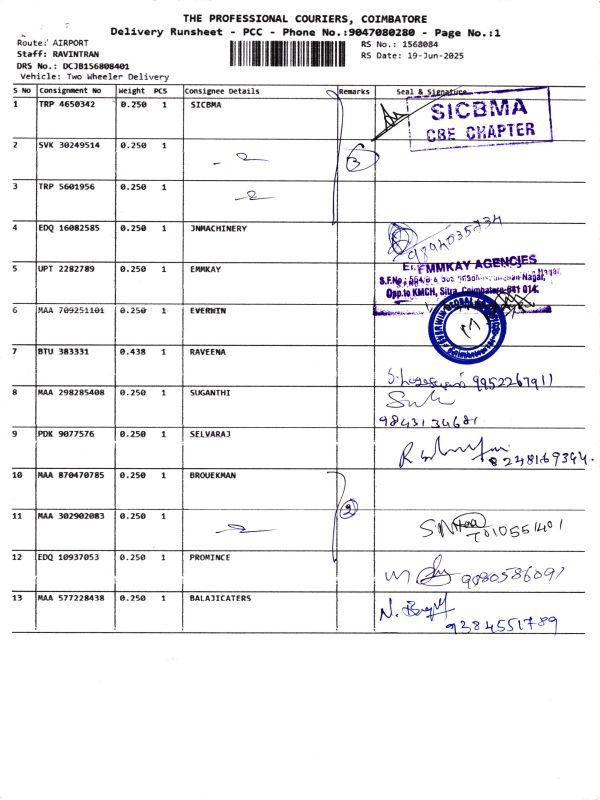 THE PROFESSIONAL COURIERS, COIMBATORE
Delivery Runsheet - PCC - Phone No.:9047080280 - Page No.:1
Route: AIRPORT
Staff: RAVINTRAN
DRS No.: DCJB156808401
Vehicle: Two Wheeler Delivery
RS No.: 1568084
RS Date: 19-Jun-2025
S No Consignment No Weight PCS Consignee Details Remarks Seal & Signature
1 TRP 4650342 0.250 1 SICBMA
SICBMA
CBE CHAPTER
2 SVK 30249514 0.250 1
3
3 TRP 5601956 0.250 1
4 EDQ 16082585 0.250 1 JNMACHINERY
9894035734
5 UPT 2282789 0.250 1 EMMKAY
EMMKAY AGENCIES
Opp.to KMCH, Sitra, Coimbatore-641 014.
6 MAA 709251101 0.250 1 EVERWIN
7 BTU 383331 0.438 1 RAVEENA
9952267911
8 MAA 298285408 0.250 1 SUGANTHI
9843134681
9 PDK 9077576 0.250 1 SELVARAJ
8248169394.
10 MAA 870470785 0.250 1 BROUEKMAN
2
11 MAA 302902083 0.250 1
7010551401
12 EDQ 10937053 0.250 1 PROMINCE
9080586091
13 MAA 577228438 0.250 1 BALAJICATERS
9384551789